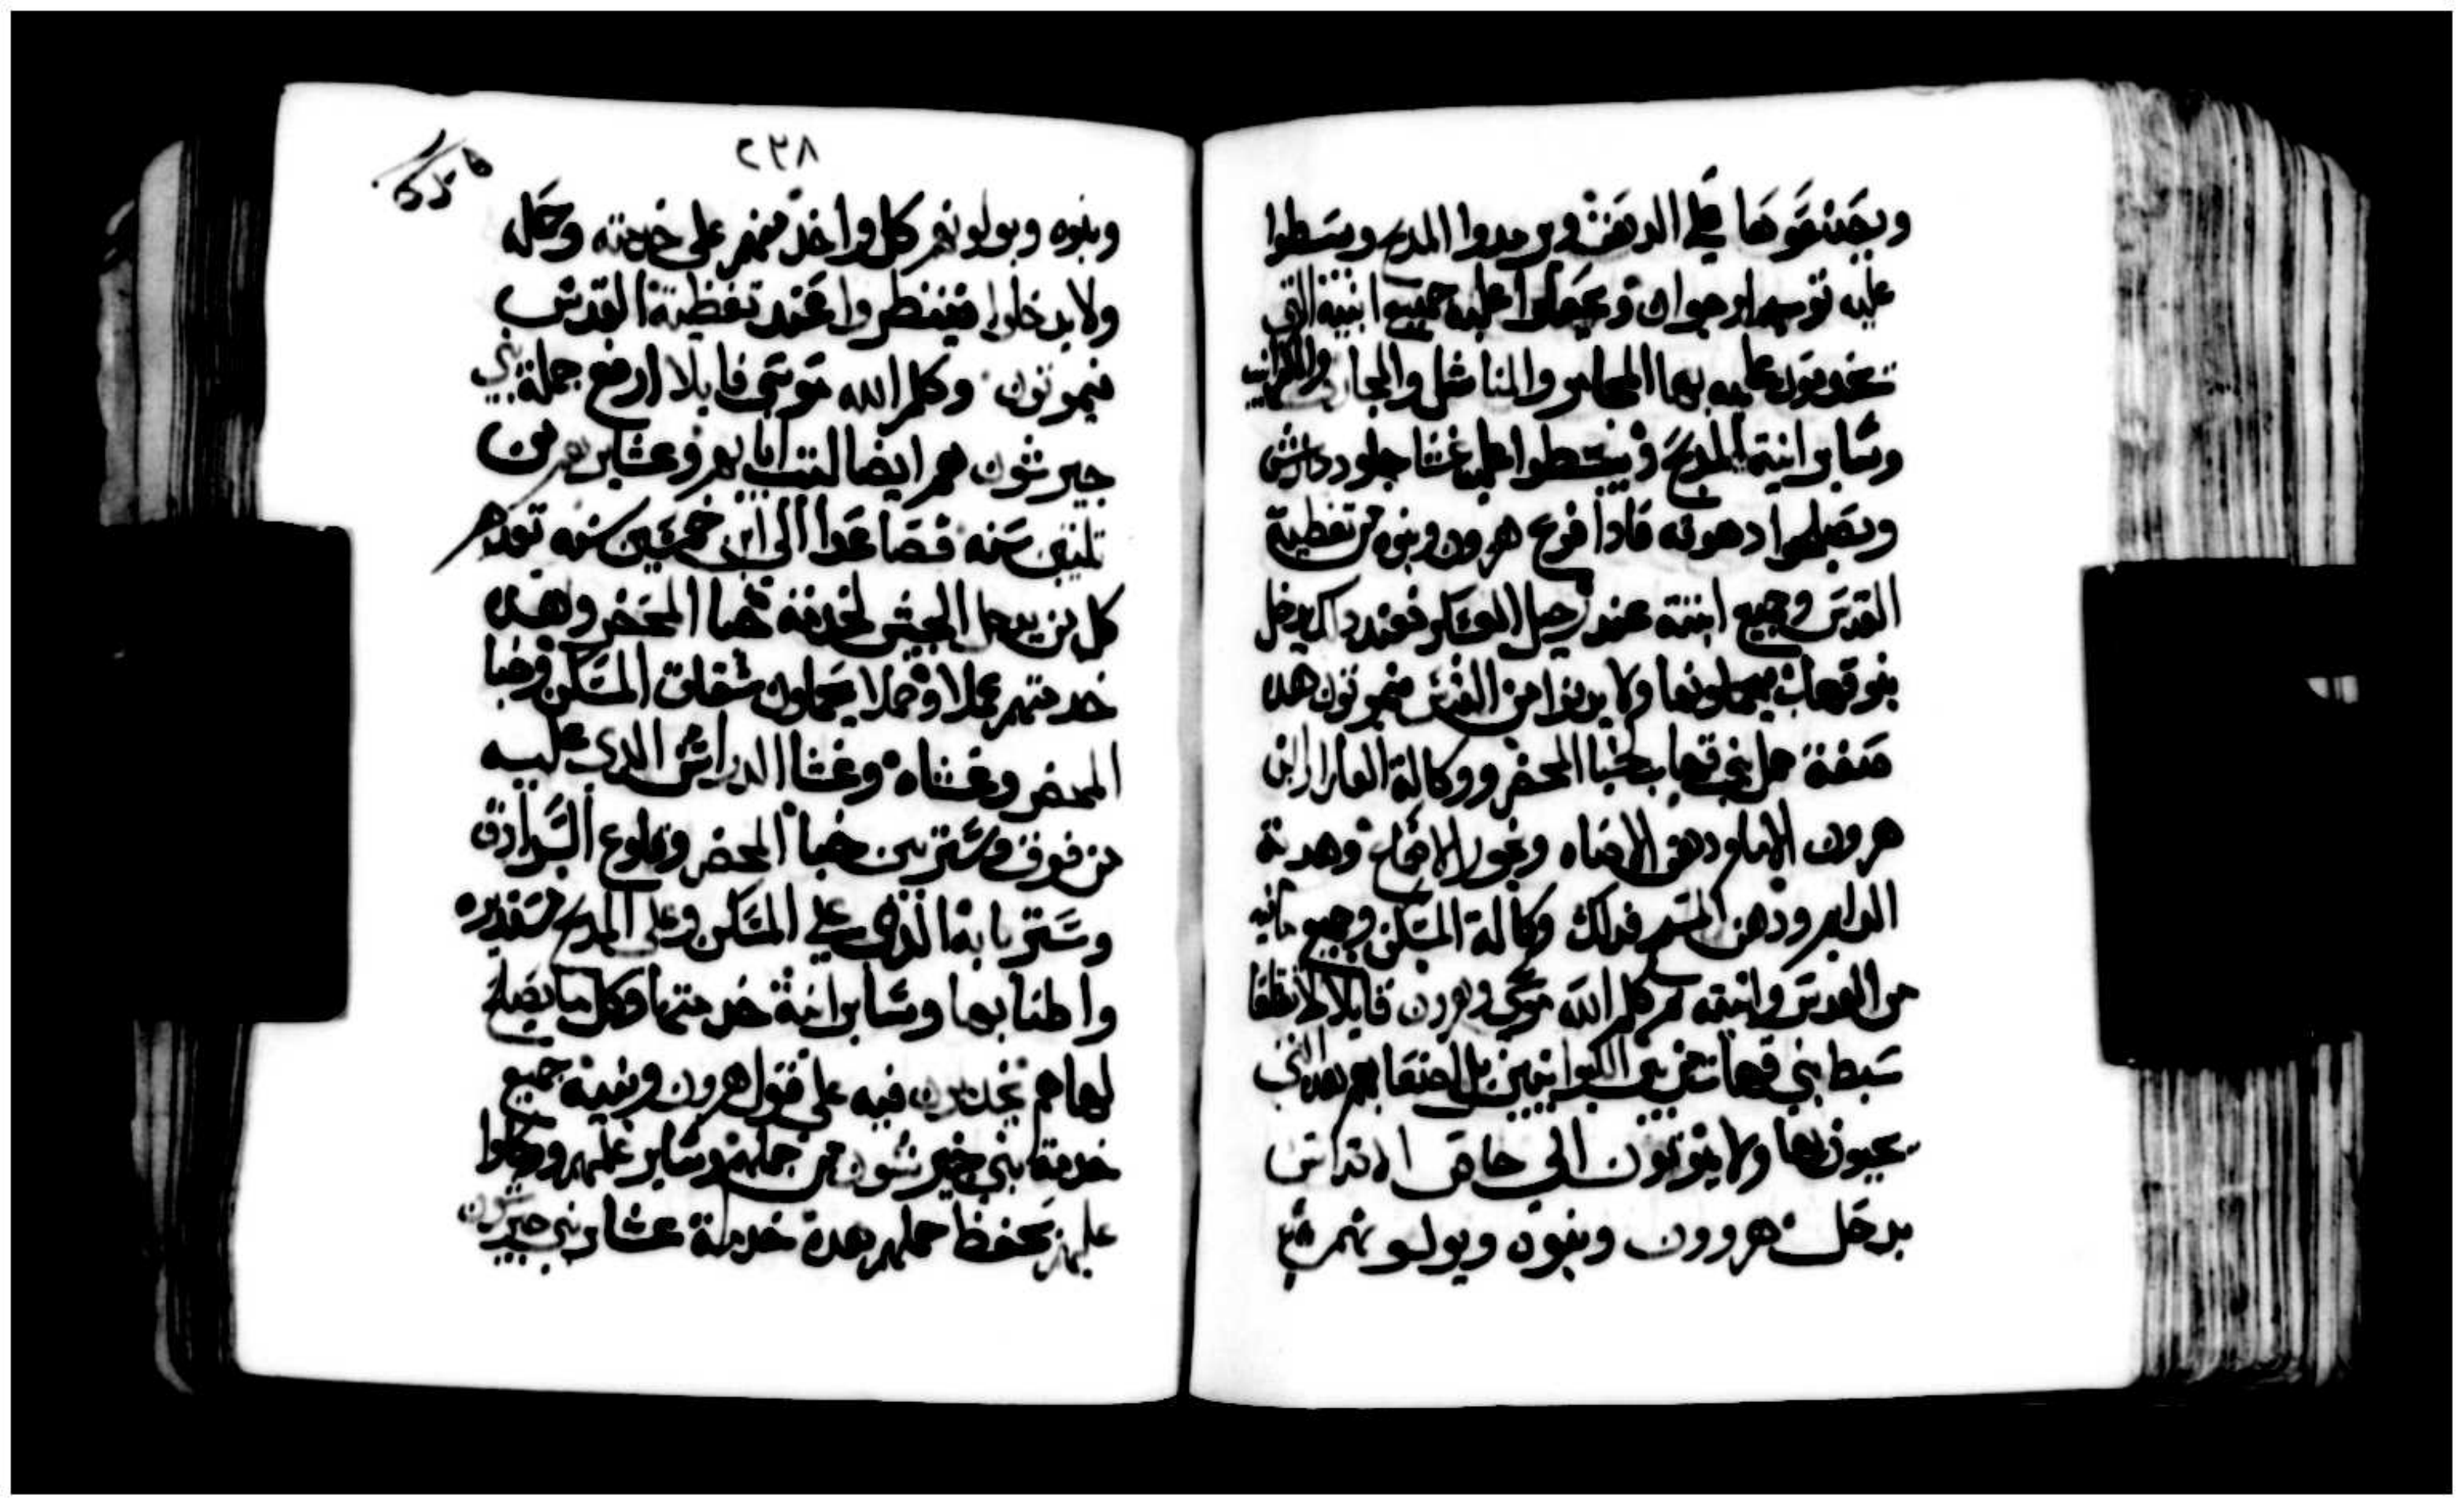 ويصنعوها في الدهق ويرمدوا المدبح ويبسطوا
عليه توب ارجوان ويجعلوا عليه جميع انيته التي
يخدمون عليه بها المجامر والمناشل والمجارف والكرانيب
وساير انية المدبح ويبسطوا عليه غشا جلود دارش
ويصلحوا دهوقه فادا فرغ هرون وبنوه من تغطية
القدس وجميع انيته عند رحيل العسكر فعند داك يدخل
بنو قهات يحملونها ولا يدنوا من القدس فيموتون هده
صفة حمل بني قهات بخبا المحضر ووكالة العازار ابن
هرون الامام دهن الاضاه وبخور الاصماغ وهدية
الدايم ودهن المسح فدلك وكالة المسكن وجميع مافيه
من القدس وانيته تم كلم الله موسى وهرون قايلا لا تقطعا
سبط بني قهات من بين الليوانيين بل اصنعا بهم هدا لكي
يحيون بها ولا يموتون الي خاص الاقداس
يدخل هرون وبنوه ويولونهم
٢٣٨
وبنوه ويولونهم كل واحد منهم على خدمته وحمله
ولا يدخلوا فينظروا عند تغطية القدس
فيموتون وكلم الله موسى قايلا ارفع جملة بني
جيرشون هم ايضا لبيت ابايهم وعشايرهم من
تلتين سنه فصاعدا الى ابن خمسين سنه تعدهم
كل من يدخل الجيش لخدمة خبا المحضر وهده
خدمتهم عملا وحملا يحملون شقاق المسكن وخبا
المحضر وغشاه وغشا الدارش الدي عليه
من فوق وستر بين خبا المحضر وقلوع السرادق
وستر بابه الدي على المسكن وعلى المدبح مستديره
واطنابها وساير انية خدمتها وكل ما يصلح
لها هم يخدمون فيه على قول هرون وبنيه جميع
خدمة بني جيرشون من حملهم وساير عملهم ووكلوا
عليهم بحفظ حملهم هده خدمة عشاير بني جيرشون